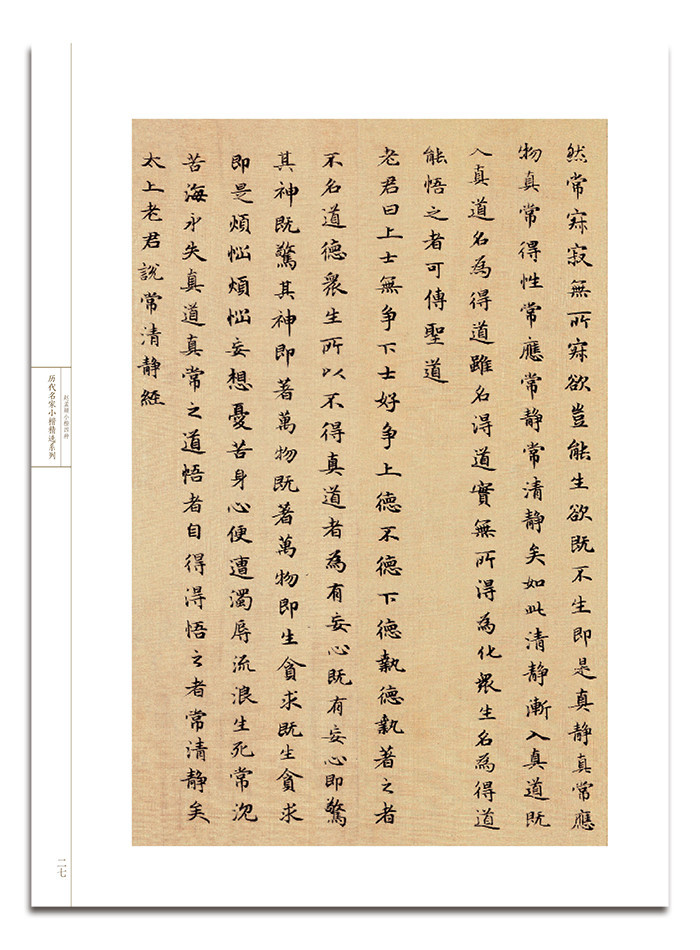 然常寂寂無所寂欲豈能生欲既不生即是真静真常應
物真常得性常應常静常清静矣如此清静漸入真道既
入真道名為得道雖名得道實無所得為化衆生名為得道
能悟之者可傳聖道
老君曰上士無争下士好争上德不德下德執德執著之者
不名道德衆生所以不得真道者為有妄心既有妄心即驚
其神既驚其神即著萬物既著萬物即生貪求既生貪求
即是煩惱煩惱妄想憂苦身心便遭濁辱流浪生死常沉
苦海永失真道真常之道悟者自得得悟之者常清静矣
太上老君說常清静經
赵孟頫小楷四种
历代名家小楷精选系列
二七